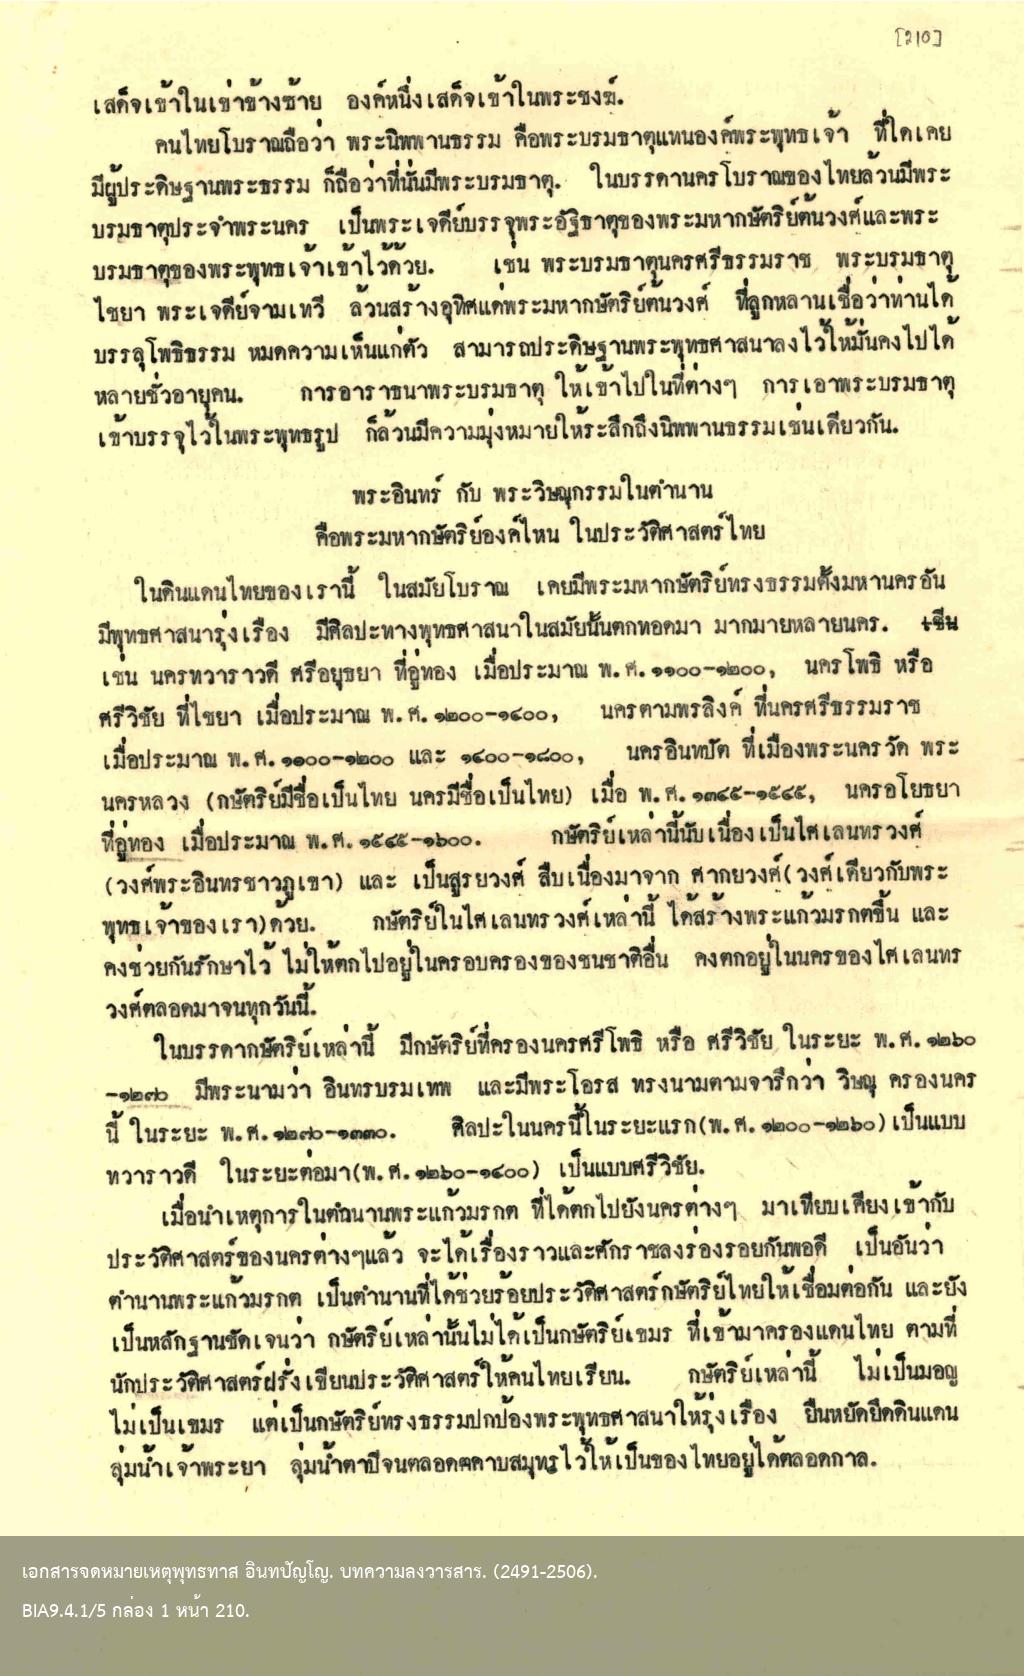 [210]
เสด็จเข้าในเข่าข้างซ้าย องค์หนึ่งเสด็จเข้าในพระชงฆ์.
คนไทยโบราณถือว่า พระนิพพานธรรม คือพระบรมธาตุแทนองค์พระพุทธเจ้า ที่ใดเคย
มีผู้ประดิษฐานพระธรรม ก็ถือว่าที่นั่นมีพระบรมธาตุ. ในบรรดานครโบราณของไทยล้วนมีพระ
บรมธาตุประจำพระนคร เป็นพระเจดีย์บรรจุพระอัฐิธาตุของพระมหากษัตริย์ต้นวงศ์และพระ
บรมธาตุของพระพุทธเจ้าเข้าไว้ด้วย. เช่น พระบรมธาตุนครศรีธรรมราช พระบรมธาตุ
ไชยา พระเจดีย์จามเทวี ล้วนสร้างอุทิศแด่พระมหากษัตริย์ต้นวงศ์ ที่ลูกหลานเชื่อว่าท่านได้
บรรลุโพธิธรรม หมดความเห็นแก่ตัว สามารถประดิษฐานพระพุทธศาสนาลงไว้ให้มั่นคงไปได้
หลายชั่วอายุคน. การอาราธนาพระบรมธาตุ ให้เข้าไปในที่ต่างๆ การเอาพระบรมธาตุ
เข้าบรรจุไว้ในพระพุทธรูป ก็ล้วนมีความมุ่งหมายให้ระลึกถึงนิพพานธรรมเช่นเดียวกัน.
พระอินทร์ กับ พระวิษณุกรรมในตำนาน
คือพระมหากษัตริย์องค์ไหน ในประวัติศาสตร์ไทย
ในดินแดนไทยของเรานี้ ในสมัยโบราณ เคยมีพระมหากษัตริย์ทรงธรรมตั้งมหานครอัน
มีพุทธศาสนารุ่งเรือง มีศิลปะทางพุทธศาสนาในสมัยนั้นตกทอดมา มากมายหลายนคร.
เช่น นครทวาราวดี ศรีอยุธยา ที่อู่ทอง เมื่อประมาณ พ.ศ.๑๑๐๐-๑๒๐๐, นครโพธิ หรือ
ศรีวิชัย ที่ไชยา เมื่อประมาณ พ.ศ.๑๒๐๐-๑๔๐๐, นครตามพรลิงค์ ที่นครศรีธรรมราช
เมื่อประมาณ พ.ศ.๑๑๐๐-๑๒๐๐ และ ๑๔๐๐-๑๘๐๐, นครอินทปัต ที่เมืองพระนครวัด พระ
นครหลวง (กษัตริย์มีชื่อเป็นไทย นครมีชื่อเป็นไทย) เมื่อ พ.ศ.๑๓๔๕-๑๕๔๕, นครอโยธยา
ที่อู่ทอง เมื่อประมาณ พ.ศ.๑๕๔๕-๑๖๐๐. กษัตริย์เหล่านี้นับเนื่องเป็นไศเลนทรวงศ์
(วงศ์พระอินทรชาวภูเขา) และ เป็นสูรยวงศ์ สืบเนื่องมาจาก ศากยวงศ์(วงศ์เดียวกับพระ
พุทธเจ้าของเรา)ด้วย. กษัตริย์ในไศเลนทรวงศ์เหล่านี้ ได้สร้างพระแก้วมรกตขึ้น และ
คงช่วยกันรักษาไว้ ไม่ให้ตกไปอยู่ในครอบครองของชนชาติอื่น คงตกอยู่ในนครของไศเลนทร
วงศ์ตลอดมาจนทุกวันนี้.
ในบรรดากษัตริย์เหล่านี้ มีกษัตริย์ที่ครองนครศรีโพธิ หรือ ศรีวิชัย ในระยะ พ.ศ.๑๒๖๐
-๑๒๗๐ มีพระนามว่า อินทรบรมเทพ และมีพระโอรส ทรงนามตามจารึกว่า วิษณุ ครองนคร
นี้ ในระยะ พ.ศ.๑๒๗๐-๑๓๓๐. ศิลปะในนครนี้ในระยะแรก(พ.ศ.๑๒๐๐-๑๒๖๐)เป็นแบบ
ทวาราวดี ในระยะต่อมา(พ.ศ.๑๒๖๐-๑๔๐๐) เป็นแบบศรีวิชัย.
เมื่อนำเหตุการในตำนานพระแก้วมรกต ที่ได้ตกไปยังนครต่างๆ มาเทียบเคียงเข้ากับ
ประวัติศาสตร์ของนครต่างๆแล้ว จะได้เรื่องราวและศักราชลงร่องรอยกันพอดี เป็นอันว่า
ตำนานพระแก้วมรกต เป็นตำนานที่ได้ช่วยร้อยประวัติศาสตร์กษัตริย์ไทยให้เชื่อมต่อกัน และยัง
เป็นหลักฐานชัดเจนว่า กษัตริย์เหล่านั้นไม่ได้เป็นกษัตริย์เขมร ที่เข้ามาครองแดนไทย ตามที่
นักประวัติศาสตร์ฝรั่งเขียนประวัติศาสตร์ให้คนไทยเรียน. กษัตริย์เหล่านี้ ไม่เป็นมอญ
ไม่เป็นเขมร แต่เป็นกษัตริย์ทรงธรรมปกป้องพระพุทธศาสนาให้รุ่งเรือง ยืนหยัดยึดดินแดน
ลุ่มน้ำเจ้าพระยา ลุ่มน้ำตาปีจนตลอดคาบสมุทรไว้ให้เป็นของไทยอยู่ได้ตลอดกาล.
เอกสารจดหมายเหตุพุทธทาส อินทปัญโญ. บทความลงวารสาร. (2491-2506).
BIA9.4.1/5 กล่อง 1 หน้า 210.